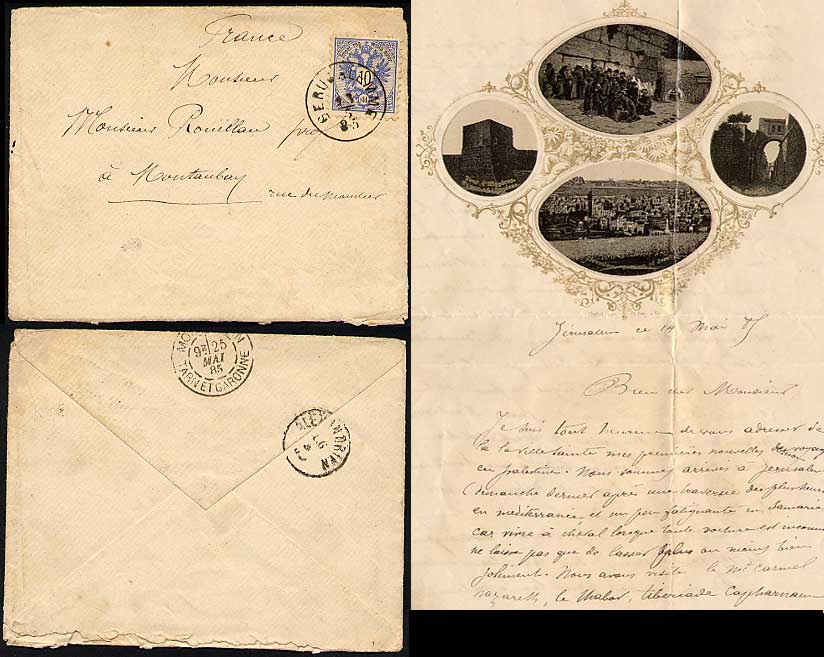 France
Monsieur
Monsieur Rouillan
à Montauban
10
85
9E 25
MAI
85
TARN ET GARONNE
ALEXANDRIEN
Jérusalem ce 14 Mai 85
Bien cher Monsieur
Je suis tout heureux de vous adresser de
la ville sainte mes premières nouvelles de mon voyage
en palestine. Nous sommes arrivés à Jérusalem
dimanche dernier après une traversée des plus heureuses
en méditerranée et un peu fatigante en Samarie
car vivre à cheval lorsque toute voiture est inconnue
ne laisse pas que de lasser plus ou moins bien
joliment. Nous avons visité le Mt Carmel
Nazareth, le Thabor, tibériade Capharnaum